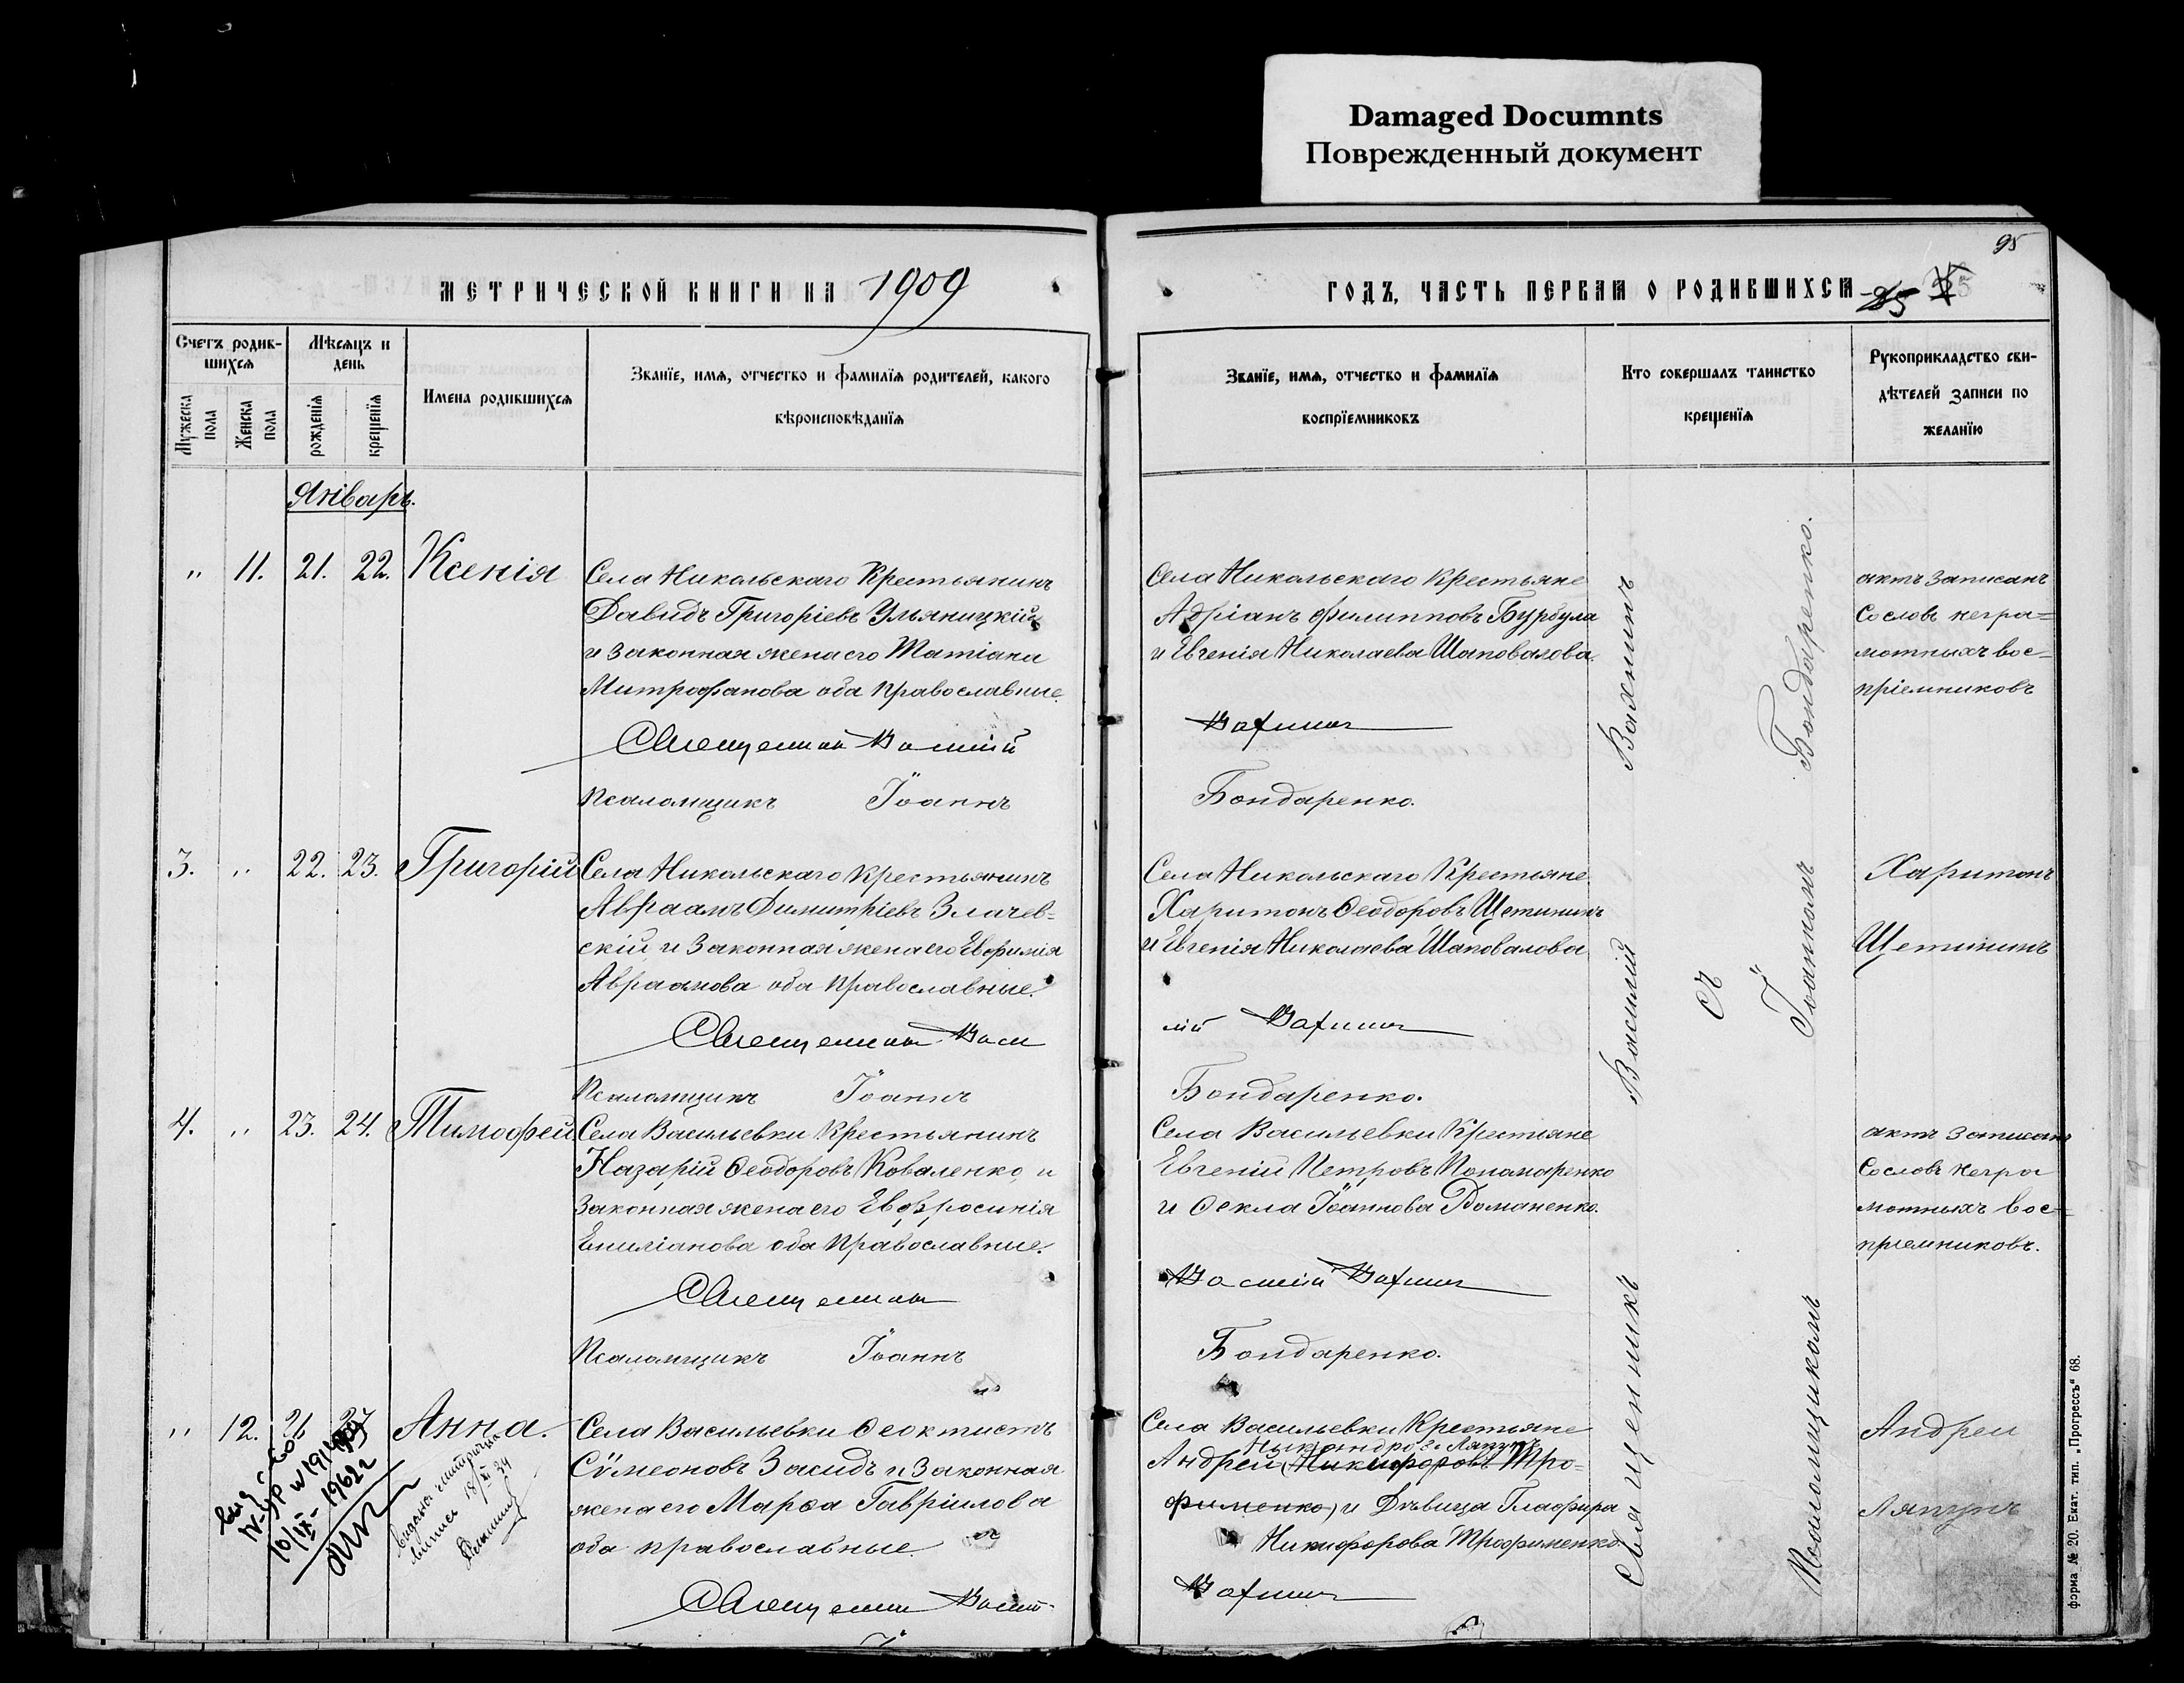 Damaged Documnts
Поврежденный документ
95
МЕТРИЧЕСКОЙ КНИГИ НА 1909
ГОДЪ, ЧАСТЬ ПЕРВАЯ О РОДИВШИХСЯ
Счетъ родив-
шихся
Мужеска
пола
Женска
пола
Мѣсяцъ и
день
рожденія
крещенія
Имена родившихся
Званіе, имя, отчество и фамилія родителей, какого
вѣроисповѣданія
Званіе, имя, отчество и фамилія
воспріемниковъ
Кто совершалъ таинство
крещенія
Рукоприкладство сви-
дѣтелей записи по
желанію
Январь.
" 11. 21. 22. Ксенія
Села Никольскаго Крестьянинъ
Давидъ Григоріевъ Ульяницкій
и законная жена его Татіана
Митрофанова оба православные.
Священникъ Василій
Псаломщикъ Іоаннъ
Села Никольскаго Крестьяне
Адріанъ Филипповъ Бурбула
и Евгенія Николаева Шаповалова.
Вахнинъ
Бондаренко.
актъ записанъ
со словъ негра=
мотныхъ вос=
пріемниковъ
3. " 22. 23. Григорій
Села Никольскаго Крестьянинъ
Авраамъ Димитріевъ Злачев-
скій и законная жена его Евфимія
Авраамова оба православные.
Священникъ Васи
Псаломщикъ Іоаннъ
Села Никольскаго Крестьяне
Харитонъ Ѳеодоровъ Щетининъ
и Евгенія Николаева Шаповалова
лій Вахнинъ
Бондаренко.
Харитонъ
Щетининъ
4. " 23. 24. Тимофей
Села Васильевки Крестьянинъ
Назарій Ѳеодоровъ Коваленко и
законная жена его Евфросинія
Емиліанова оба православные.
Священникъ
Псаломщикъ Іоаннъ
Села Васильевки Крестьяне
Евгеній Петровъ Пономаренко
и Ѳекла Іоаннова Доманенко.
Василій Вахнинъ
Бондаренко.
актъ записанъ
со словъ негра
мотныхъ вос=
пріемниковъ.
" 12. Анна.
Села Васильевки Ѳеоктистъ
Сѵмеоновъ Засидъ и законная
жена его Марѳа Гавріилова
оба православные.
Священник Васил-
Села Васильевки Крестьяне
Андрей Никифоровъ Тро=
фименко и Дѣвица Глафира
Никифорова Трофименко.
Вахнинъ
Андрей
Ляпунъ
Священникъ Василій Вахнинъ
съ
Псаломщикомъ Іоанномъ Бондаренко.
форма № 20. Екат. тип. „Прогрессъ“ 68.